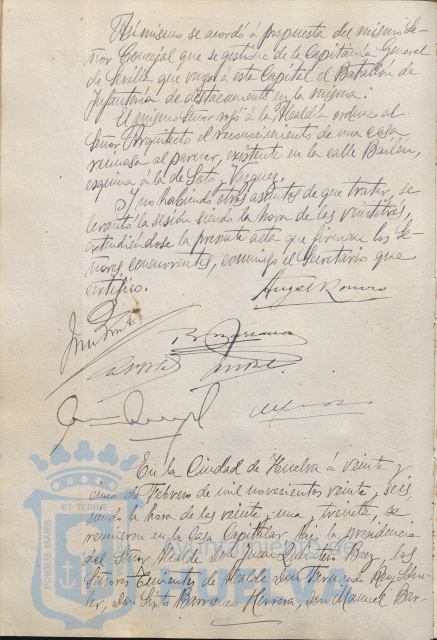 Asimismo se acordó á propuesta del mismo Se-
ñor Concejal que se gestione de la Capitanía General
de Sevilla que venga á esta Capital el Batallón de
Infantería de destacamento en la misma.
El mismo Señor rogó á la Alcaldía ordene al
Señor Arquitecto el reconocimiento de una casa
ruinosa al parecer, existente en la calle Bailén,
esquina á la de Soto, Vázquez.
Y no habiendo otros asuntos de que tratar, se
levantó la sesión siendo la hora de las veintitrés,
extendiéndose la presente acta que firman los Se-
ñores concurrentes, conmigo el Secretario que
certifico.
Angel Romero
En la Ciudad de Huelva á veinte y
cinco de Febrero de mil novecientos veinte y seis,
siendo la hora de las veinte una, treinta, se
reunieron en la Casa Capitular bajo la presidencia
del Señor Alcalde Don Juan Quintero Baez, los
Señores Tenientes de Alcalde Don Fernando Rey
Don Sixto Barranco Herrera, Don Manuel Bar-
PORTUS MARIS
ET TERRE
Ayuntamiento de
HUELVA